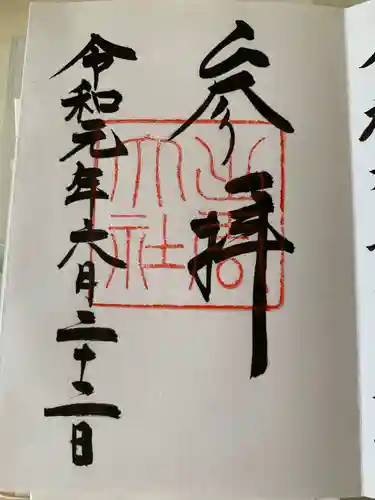 参拝
出雲
大社
令和元年六月二十二日